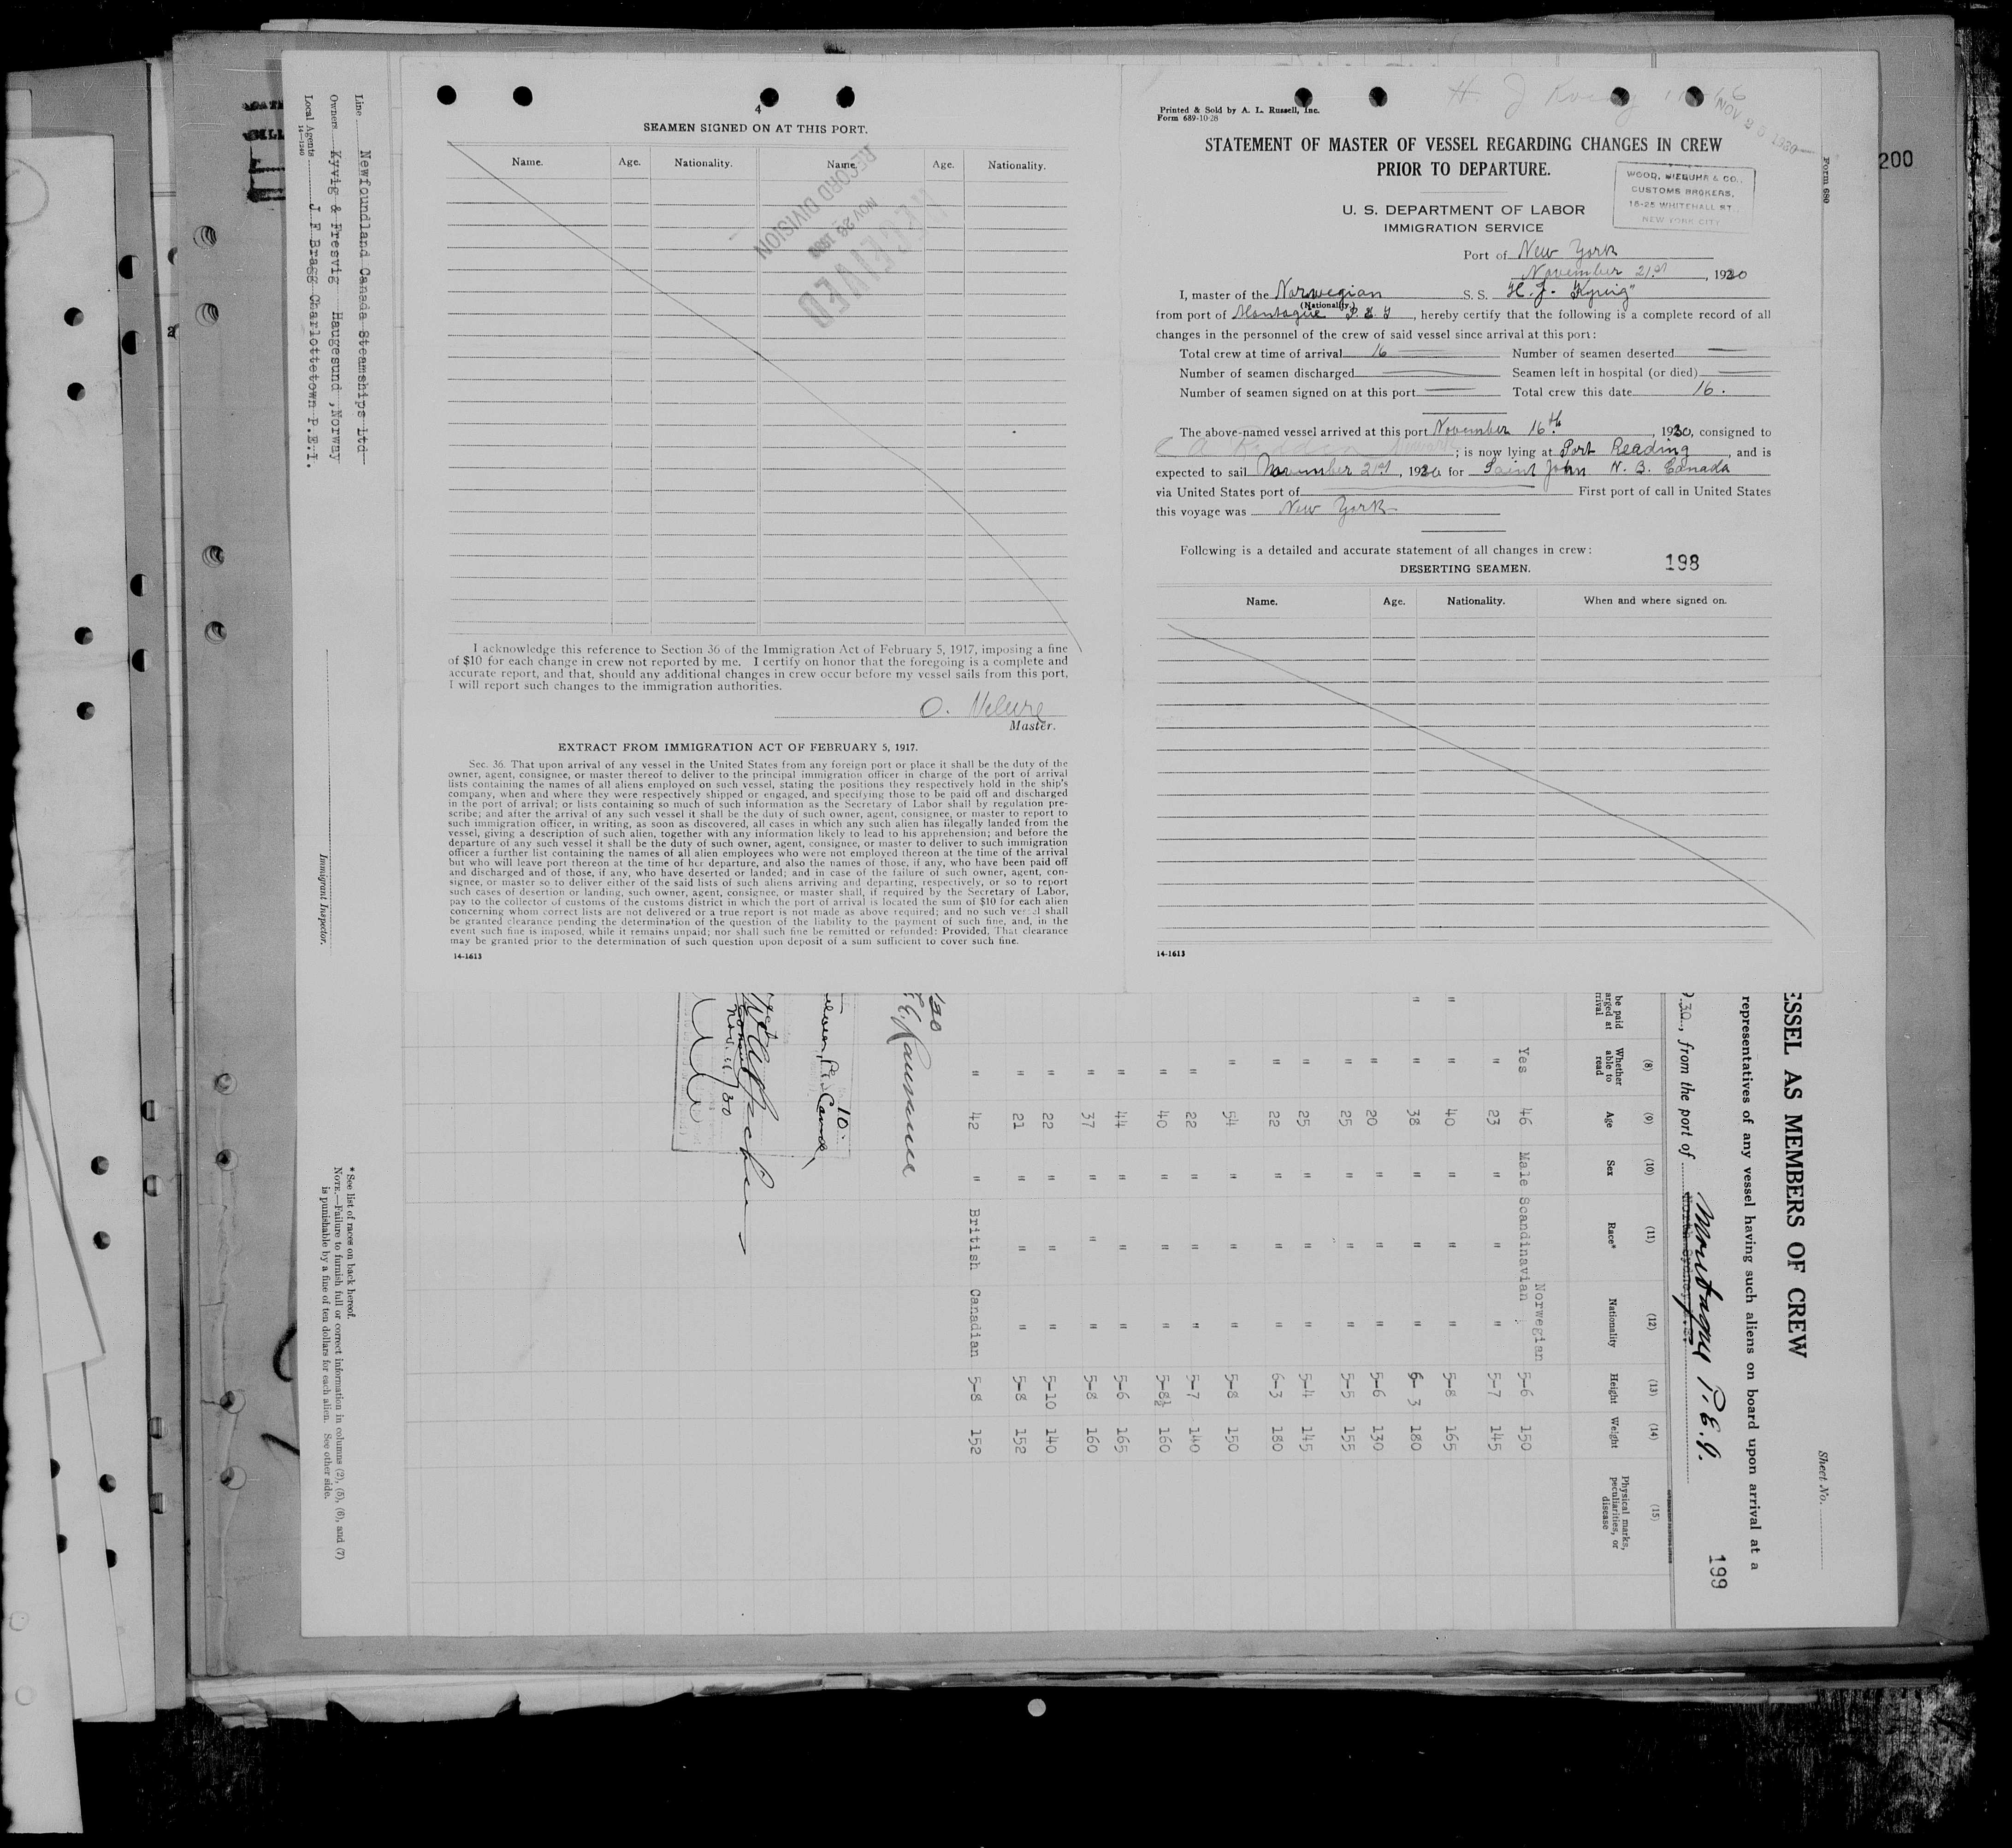 4
SEAMEN SIGNED ON AT THIS PORT.
Name. Age. Nationality. Name. Age. Nationality.
RECEIVED
NOV 28 1930
RECORD DIVISION
I acknowledge this reference to Section 36 of the Immigration Act of February 5, 1917, imposing a fine
of $10 for each change in crew not reported by me. I certify on honor that the foregoing is a complete and
accurate report, and that, should any additional changes in crew occur before my vessel sails from this port,
I will report such changes to the immigration authorities.
O.
Master.
EXTRACT FROM IMMIGRATION ACT OF FEBRUARY 5, 1917.
Sec. 36. That upon arrival of any vessel in the United States from any foreign port or place it shall be the duty of the
owner, agent, consignee, or master thereof to deliver to the principal immigration officer in charge of the port of arrival
lists containing the names of all aliens employed on such vessel, stating the positions they respectively hold in the ship's
company, when and where they were respectively shipped or engaged, and specifying those to be paid off and discharged
in the port of arrival; or lists containing so much of such information as the Secretary of Labor shall by regulation pre-
scribe; and after the arrival of any such vessel it shall be the duty of such owner, agent, consignee, or master to report to
such immigration officer, in writing, as soon as discovered, all cases in which any such alien has illegally landed from the
vessel, giving a description of such alien, together with any information likely to lead to his apprehension; and before the
departure of any such vessel it shall be the duty of such owner, agent, consignee, or master to deliver to such immigration
officer a further list containing the names of all alien employees who were not employed thereon at the time of the arrival
but who will leave port thereon at the time of her departure, and also the names of those, if any, who have been paid off
and discharged and of those, if any, who have deserted or landed; and in case of the failure of such owner, agent, con-
signee, or master so to deliver either of the said lists of such aliens arriving and departing, respectively, or so to report
such cases of desertion or landing, such owner, agent, consignee, or master shall, if required by the Secretary of Labor,
pay to the collector of customs of the customs district in which the port of arrival is located the sum of $10 for each alien
concerning whom correct lists are not delivered or a true report is not made as above required; and no such vessel shall
be granted clearance pending the determination of the question of the liability to the payment of such fine, and, in the
event such fine is imposed, while it remains unpaid; nor shall such fine be remitted or refunded: Provided, That clearance
may be granted prior to the determination of such question upon deposit of a sum sufficient to cover such fine.
14-1613
Printed & Sold by A. L. Russell, Inc.
Form 689-10-28
NOV 26 1930
Form 680
200
STATEMENT OF MASTER OF VESSEL REGARDING CHANGES IN CREW
PRIOR TO DEPARTURE.
WOOD, NIEBUHR & CO.,
CUSTOMS BROKERS,
18-25 WHITEHALL ST.
NEW YORK CITY
U. S. DEPARTMENT OF LABOR
IMMIGRATION SERVICE
Port of New York
November 21st, 1930
I, master of the Norwegian S. S. "H. J. Kyvig"
(Nationality.)
from port of Montague P. E. I, hereby certify that the following is a complete record of all
changes in the personnel of the crew of said vessel since arrival at this port:
Total crew at time of arrival 16 Number of seamen deserted
Number of seamen discharged Seamen left in hospital (or died)
Number of seamen signed on at this port Total crew this date 16.
The above-named vessel arrived at this port November 16th, 1930, consigned to
; is now lying at Port Reading, and is
expected to sail November 21st, 1930 for Saint John N. B. Canada
via United States port of First port of call in United States
this voyage was New York
Following is a detailed and accurate statement of all changes in crew:
198
DESERTING SEAMEN.
Name. Age. Nationality. When and where signed on.
14-1613
Line Newfoundland Canada Steamships Ltd
Owners Kyvig & Fresvig Haugesund ,Norway
Local Agents J F Bragg Charlottetown P.E.I.
14-1240
Immigrant Inspector.
Sheet No.
ESSEL AS MEMBERS OF CREW
representatives of any vessel having such aliens on board upon arrival at a
199
30, from the port of Montague P.E.I.
(8) (9) (10) (11) (12) (13) (14) (15)
be paid
arged at
rrival
Whether able to read Age Sex Race* Nationality Height Weight Physical marks, peculiarities, or disease
Norwegian
Yes 46 Male Scandinavian 5-6 150
" 23 " " " 5-7 145
" " 40 " " " 5-8 165
" " 38 " " " 6-3 180
" 20 " " " 5-6 130
" 25 " " " 5-5 155
" 25 " " " 5-4 145
" 22 " " " 6-3 180
" 54 " " " 5-8 150
" 22 " " " 5-7 140
" 40 " " " 5-8½ 160
" 44 " " " 5-6 165
" 37 " " " 5-8 160
" 22 " " " 5-10 140
" 21 " " " 5-8 152
" 42 " British Canadian 5-8 152
10.
Nov. 11/30
* See list of races on back hereof.
NOTE.—Failure to furnish full or correct information in columns (2), (5), (6), and (7)
is punishable by a fine of ten dollars for each alien. See other side.